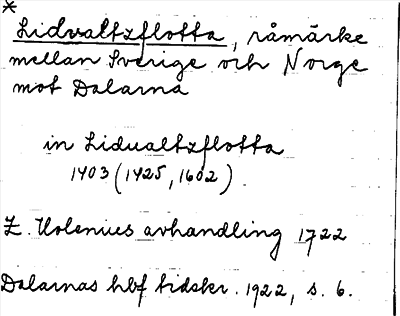 *
Lidvaltzflotta, råmärke
mellan Sverige och Norge
mot Dalarna
in Lidualtzflotta
1403 (1425, 1602)
Z. Holenius avhandling 1722
Dalarnas hbf tidskr. 1922, s. 6.